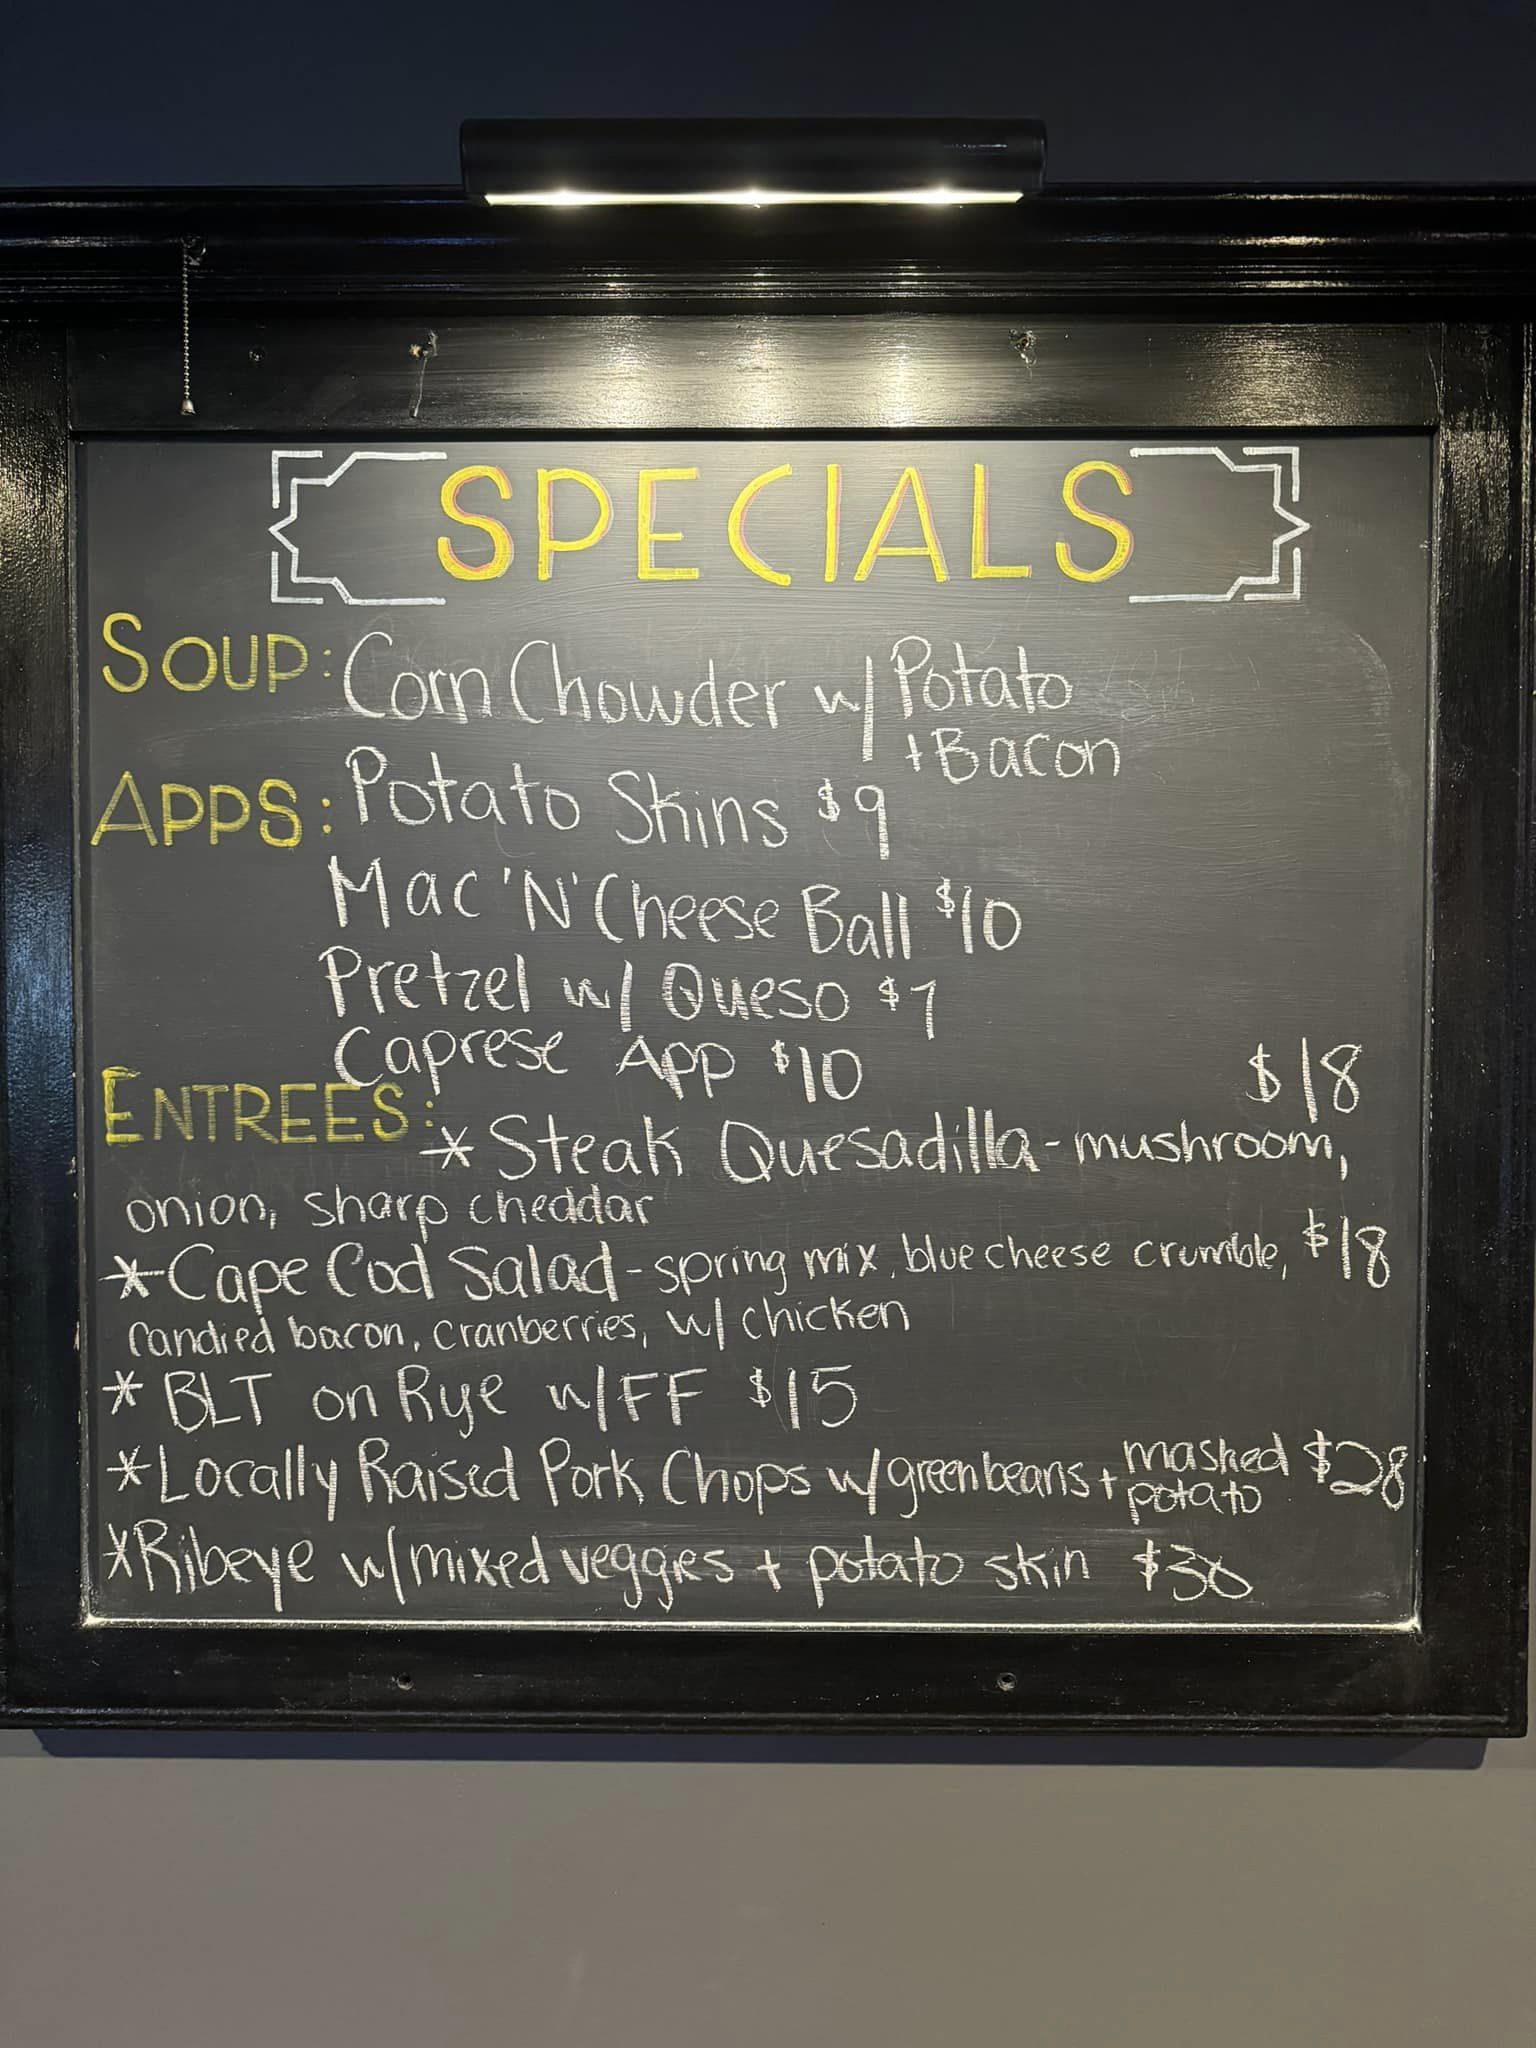 SPECIALS
SOUP: Corn Chowder w/ Potato
+ Bacon
APPS: Potato Skins $9
Mac 'N' Cheese Ball $10
Pretzel w/ Queso $7
Caprese App $10
ENTREES: $18
* Steak Quesadilla - mushroom,
onion, sharp cheddar
* Cape Cod Salad - spring mix, blue cheese crumble, $18
candied bacon, cranberries, w/ chicken
* BLT on Rye w/FF $15
* Locally Raised Pork Chops w/ green beans + mashed potato $28
* Ribeye w/ mixed veggies + potato skin $30